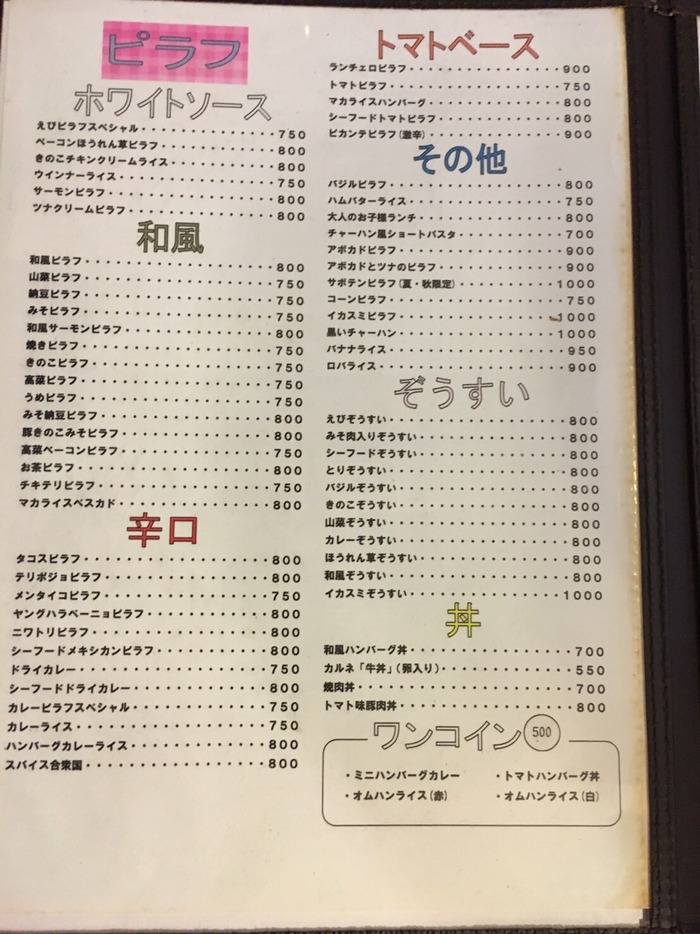 ピラフ
ホワイトソース
えびピラフスペシャル・・・・・・・・・・・・750
ベーコンほうれん草ピラフ・・・・・・・・・・・・800
きのこチキンクリームライス・・・・・・・・・・・・800
ウインナーライス・・・・・・・・・・・・750
サーモンピラフ・・・・・・・・・・・・800
ツナクリームピラフ・・・・・・・・・・・・800
和風
和風ピラフ・・・・・・・・・・・・800
山菜ピラフ・・・・・・・・・・・・750
納豆ピラフ・・・・・・・・・・・・750
みそピラフ・・・・・・・・・・・・750
和風サーモンピラフ・・・・・・・・・・・・800
焼きピラフ・・・・・・・・・・・・750
きのこピラフ・・・・・・・・・・・・750
高菜ピラフ・・・・・・・・・・・・750
うめピラフ・・・・・・・・・・・・750
みそ納豆ピラフ・・・・・・・・・・・・800
豚きのこみそピラフ・・・・・・・・・・・・800
高菜ベーコンピラフ・・・・・・・・・・・・750
お茶ピラフ・・・・・・・・・・・・800
チキテリピラフ・・・・・・・・・・・・750
マカライスペスカド・・・・・・・・・・・・800
辛口
タコスピラフ・・・・・・・・・・・・800
テリポジョピラフ・・・・・・・・・・・・800
メンタイコピラフ・・・・・・・・・・・・750
ヤングハラペーニョピラフ・・・・・・・・・・・・800
ニワトリピラフ・・・・・・・・・・・・800
シーフードメキシカンピラフ・・・・・・・・・・・・800
ドライカレー・・・・・・・・・・・・750
シーフードドライカレー・・・・・・・・・・・・800
カレーピラフスペシャル・・・・・・・・・・・・750
カレーライス・・・・・・・・・・・・750
ハンバーグカレーライス・・・・・・・・・・・・800
スパイス合衆国・・・・・・・・・・・・800
トマトベース
ランチェロピラフ・・・・・・・・・・・・900
トマトピラフ・・・・・・・・・・・・750
マカライスハンバーグ・・・・・・・・・・・・800
シーフードトマトピラフ・・・・・・・・・・・・800
ピカンテピラフ(激辛)・・・・・・・・・・・・900
その他
バジルピラフ・・・・・・・・・・・・800
ハムバターライス・・・・・・・・・・・・750
大人のお子様ランチ・・・・・・・・・・・・800
チャーハン風ショートパスタ・・・・・・・・・・・・700
アボカドピラフ・・・・・・・・・・・・900
アボカドとツナのピラフ・・・・・・・・・・・・900
サボテンピラフ(夏・秋限定)・・・・・・・・・・・・1000
コーンピラフ・・・・・・・・・・・・750
イカスミピラフ・・・・・・・・・・・・1000
黒いチャーハン・・・・・・・・・・・・1000
バナナライス・・・・・・・・・・・・950
ロバライス・・・・・・・・・・・・900
ぞうすい
えびぞうすい・・・・・・・・・・・・800
みそ肉入りぞうすい・・・・・・・・・・・・800
シーフードぞうすい・・・・・・・・・・・・800
とりぞうすい・・・・・・・・・・・・800
バジルぞうすい・・・・・・・・・・・・800
きのこぞうすい・・・・・・・・・・・・800
山菜ぞうすい・・・・・・・・・・・・800
カレーぞうすい・・・・・・・・・・・・800
ほうれん草ぞうすい・・・・・・・・・・・・800
和風ぞうすい・・・・・・・・・・・・800
イカスミぞうすい・・・・・・・・・・・・1000
丼
和風ハンバーグ丼・・・・・・・・・・・・700
カルネ「牛丼」(卵入り)・・・・・・・・・・・・550
焼肉丼・・・・・・・・・・・・700
トマト味豚肉丼・・・・・・・・・・・・800
ワンコイン 500
・ミニハンバーグカレー ・トマトハンバーグ丼
・オムハンライス(赤) ・オムハンライス(白)